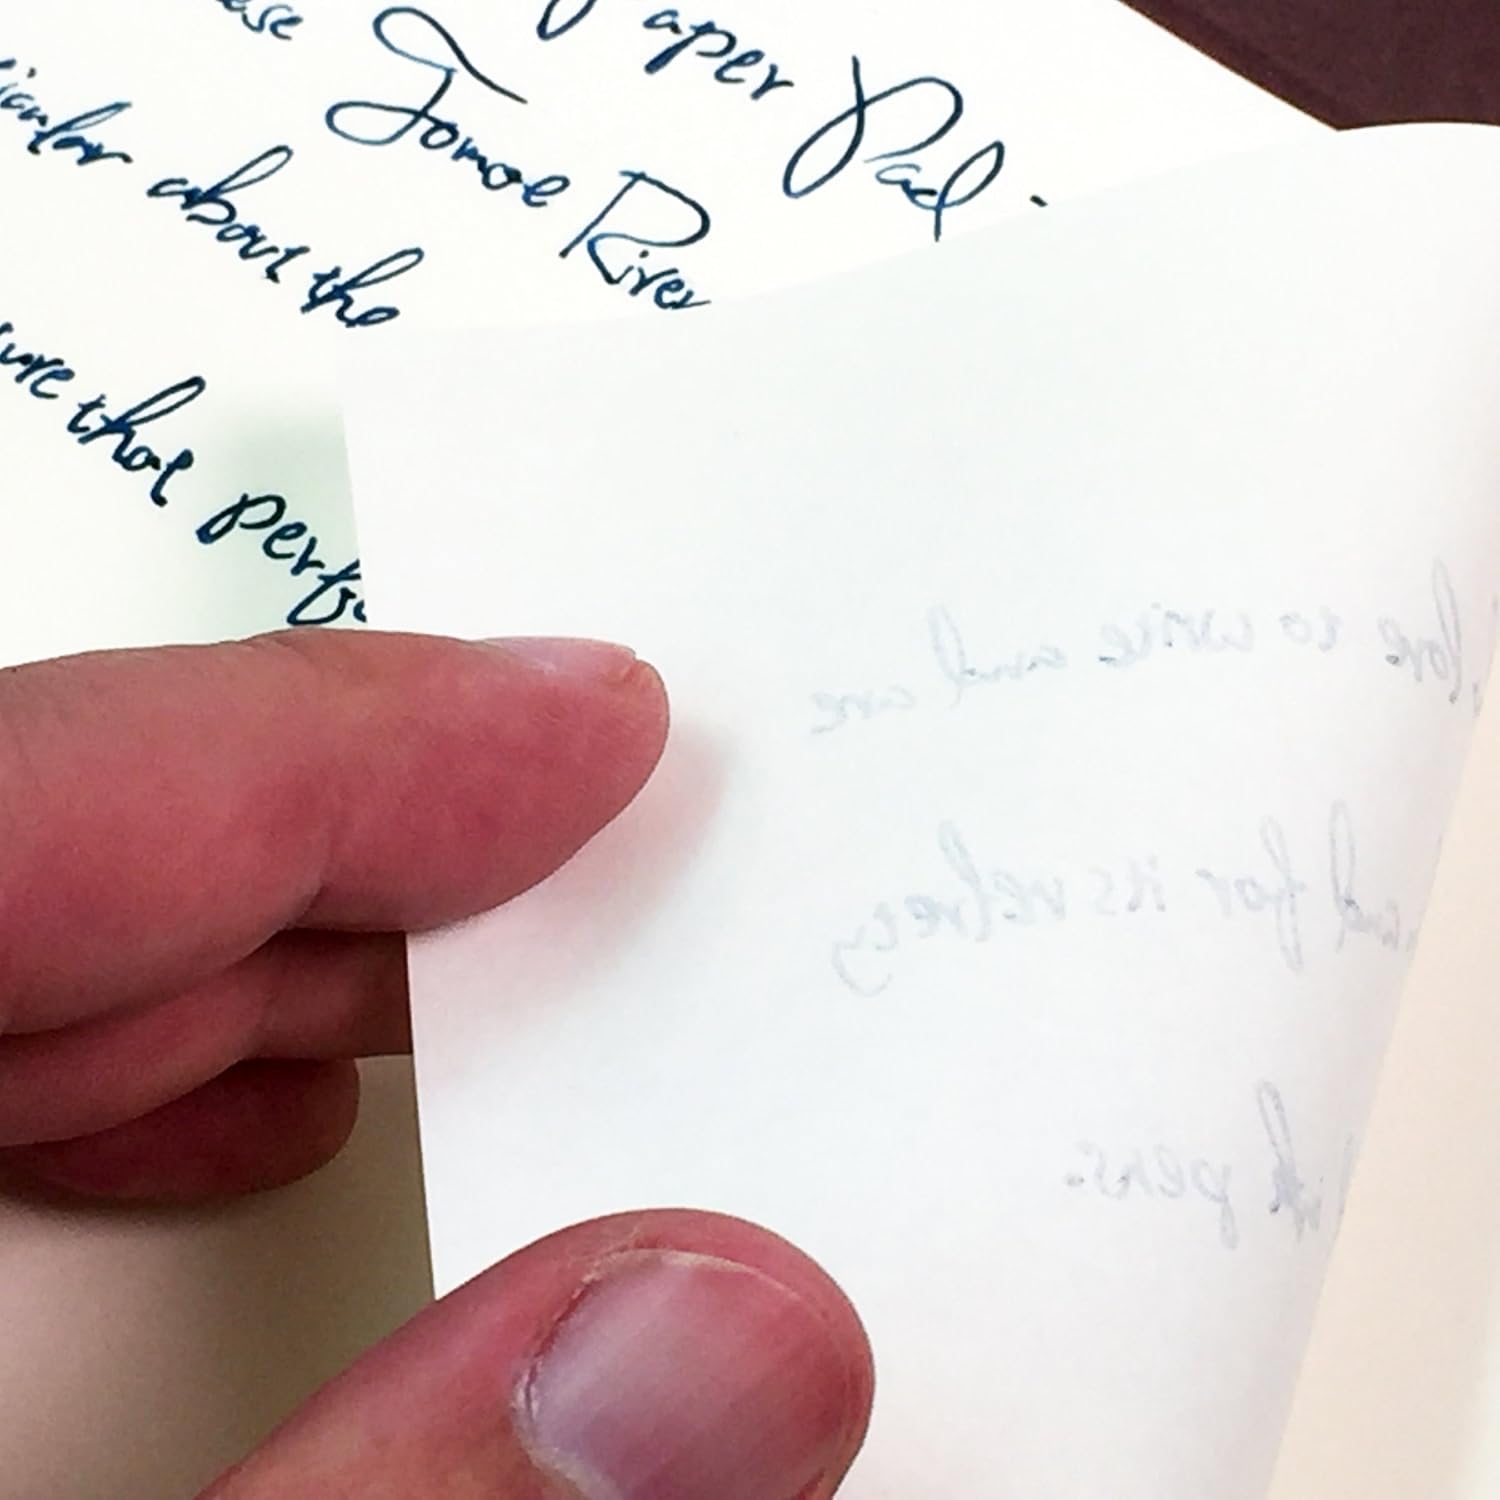 Paper Pad.
ese Tomoe River
icular about the
ure that perfe
love to write and are
and for its velvety
ink pens.